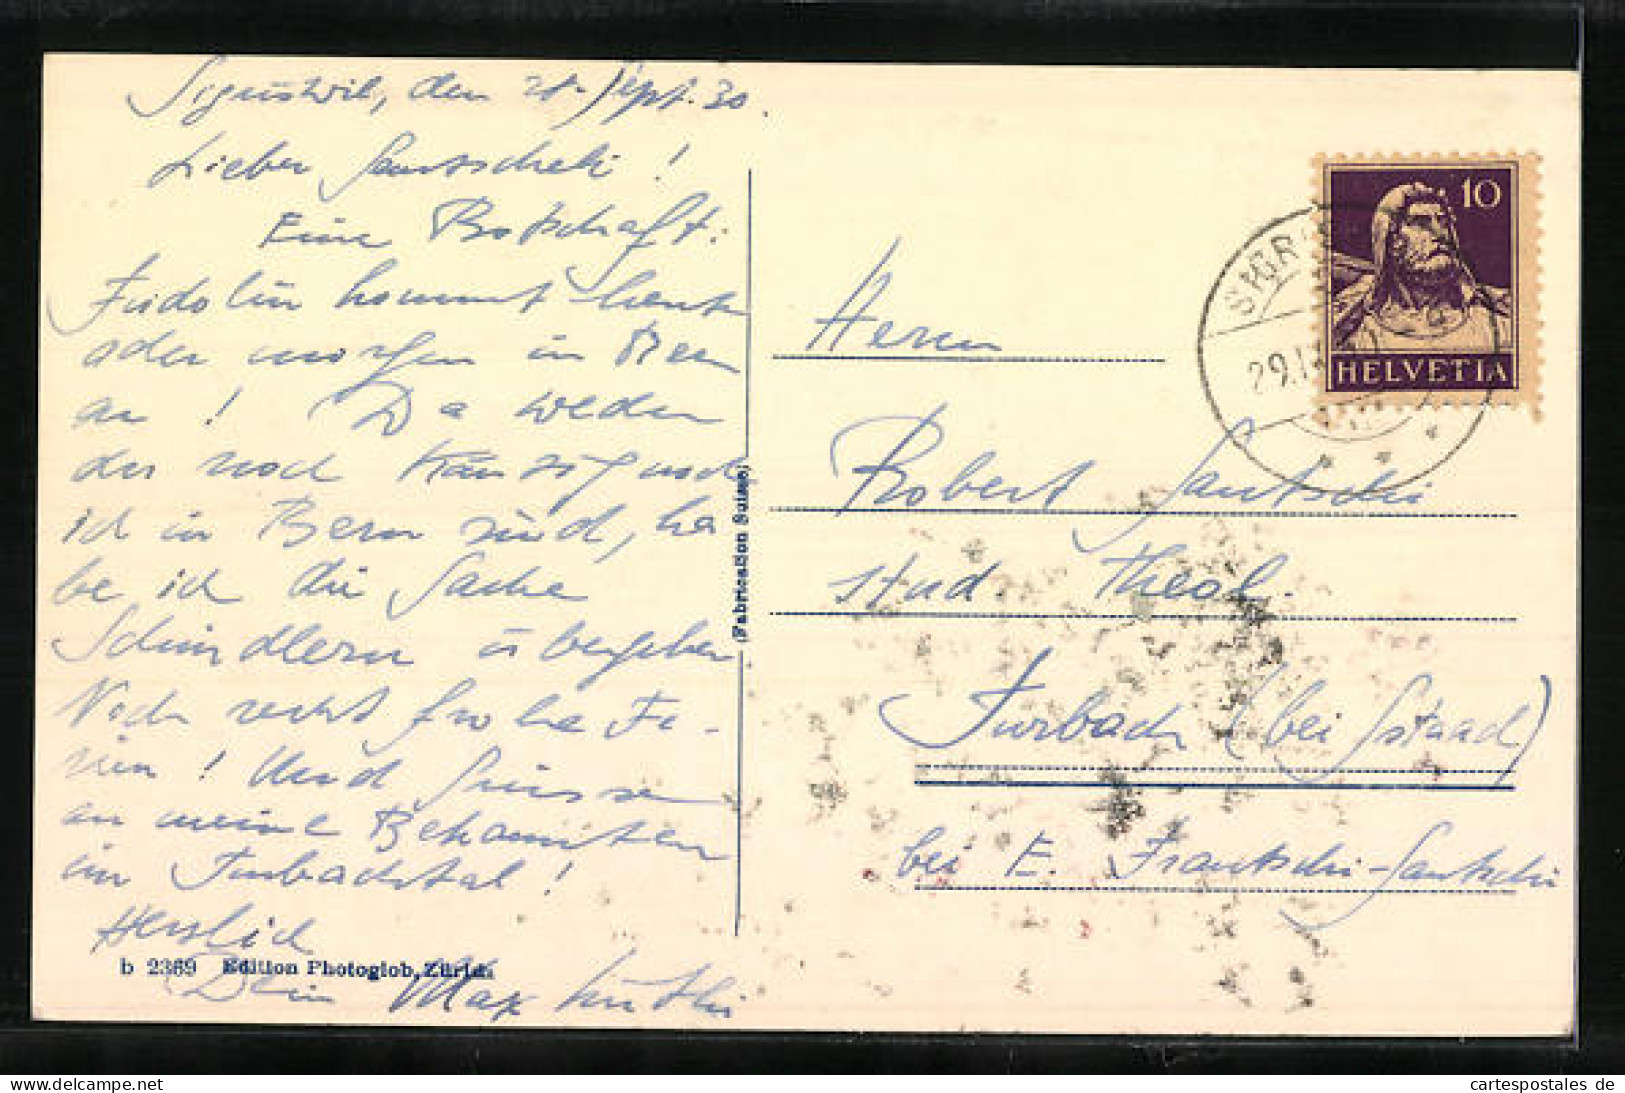 Sigriswil, den Sept. 30.
Lieber Santscheli!
Eine Botschaft:
Fridolin kommt heute
oder morgen in Bern
an! Da weder
du noch Känzig noch
ich in Bern sind, ha
be ich die Sache
Schindlern übergeben.
Noch recht frohe Fe-
rien! Und Grüsse
an meine Bekannten
im Turbachtal!
Herzlich
Dein Max Lüthi
b 2369 Edition Photoglob, Zürich.
(Fabrication Suisse)
10
HELVETIA
SIGRISWIL
29.IX.30
Herrn
Robert Santschi
stud. theol.
Turbach (bei Gstaad)
bei E. Frautschi-Santschi
delcampe.net
cartespostales de